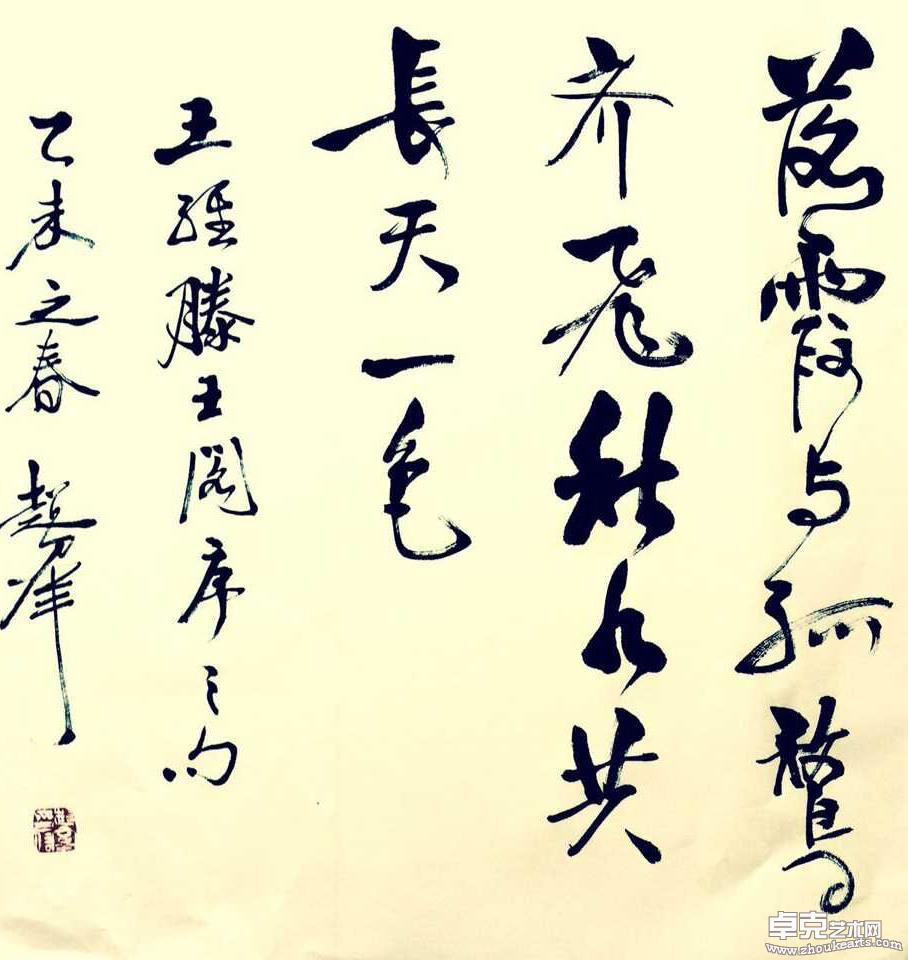 落霞与孤鶩
齐飛秋水共
長天一色
王滕王阁序之句
乙未之春
卓克艺术网
www.zhoukearts.com